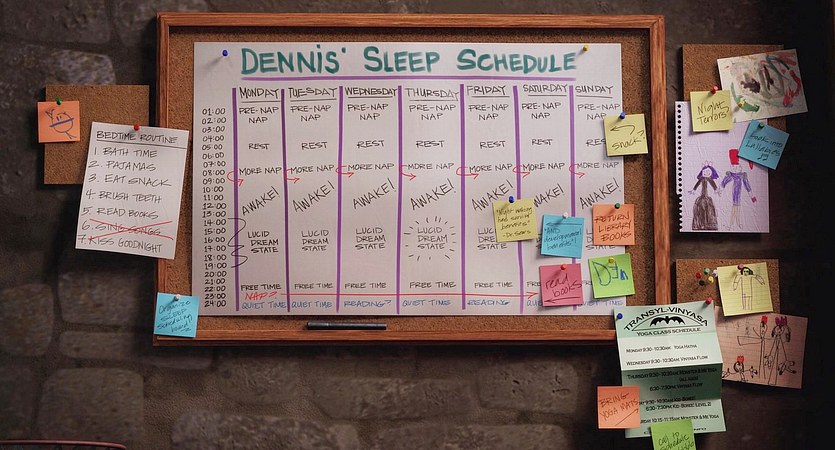 DENNIS' SLEEP SCHEDULE
MONDAY TUESDAY WEDNESDAY THURSDAY FRIDAY SATURDAY SUNDAY
01:00
02:00
03:00
04:00
05:00
06:00
07:00
08:00
09:00
10:00
11:00
12:00
13:00
14:00
15:00
16:00
17:00
18:00
19:00
20:00
21:00
22:00
23:00
24:00
PRE-NAP PRE-NAP PRE-NAP PRE-NAP PRE-NAP PRE-NAP PRE-NAP
NAP NAP NAP NAP NAP NAP NAP
REST REST REST REST REST REST REST
MORE NAP MORE NAP MORE NAP MORE NAP MORE NAP MORE NAP MORE NAP
AWAKE! AWAKE! AWAKE! AWAKE! AWAKE! AWAKE! AWAKE!
LUCID LUCID LUCID LUCID
DREAM DREAM DREAM DREAM
STATE STATE STATE STATE
FREE TIME FREE TIME FREE TIME FREE TIME FREE TIME
NAP?
QUIET TIME QUIET TIME READING? QUIET TIME READING
BEDTIME ROUTINE
1. BATH TIME
2. PAJAMAS
3. EAT SNACK
4. BRUSH TEETH
5. READ BOOKS
6. SING SONGS
7. KISS GOODNIGHT
ORGANIZE
SLEEP
SCHEDULING
board!
Snack?
RETURN
LIBRARY
BOOKS
read
books
DEn
Night
Terrors
TRANSYL-VINYASA
YOGA CLASS SCHEDULE
MONDAY 9:30-10:30AM YOGA HATHA
WEDNESDAY 9:30-10:30AM VINYASA FLOW
BRING
YOGA MATS